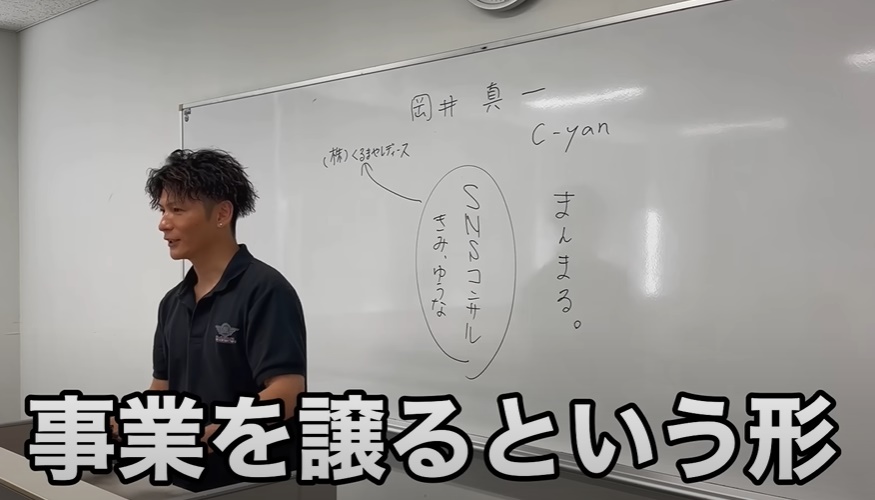 岡井 真一
C-yan
(株)くるまやレディース
SNSコンサル
きみ、ゆうな
まんまる。
事業を譲るという形